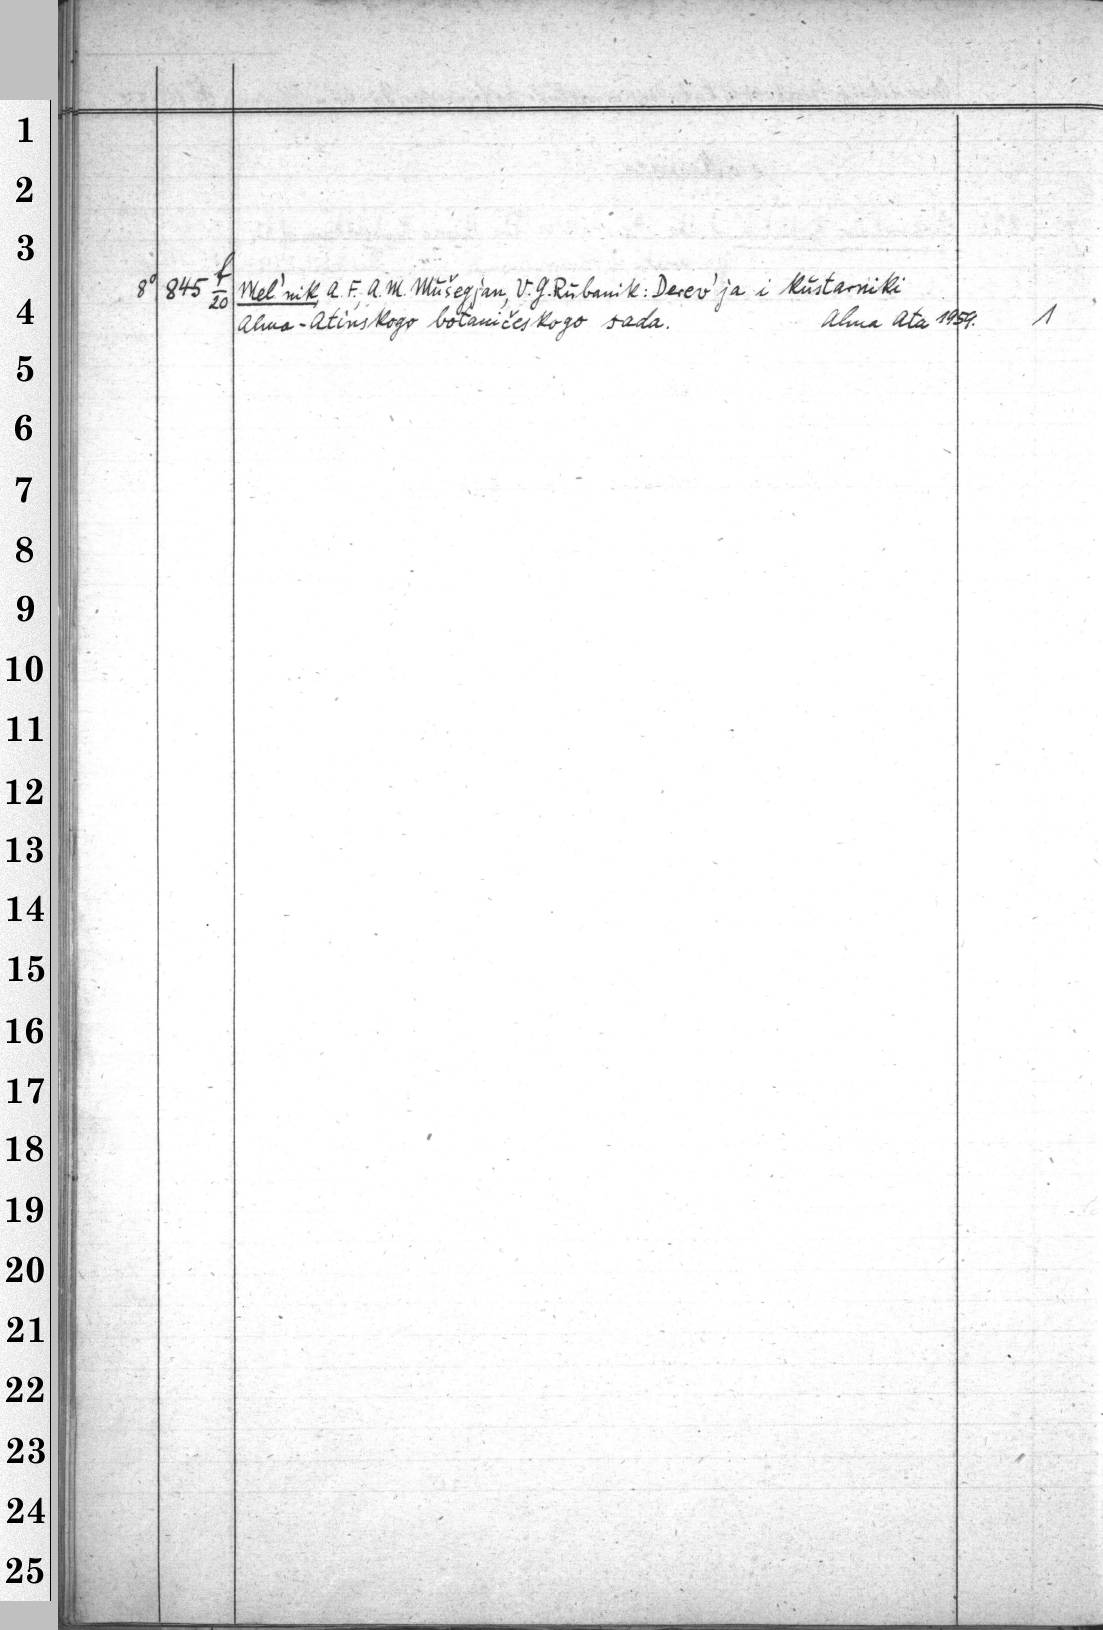 1
2
3
8° 845 f/20 Mel'nik, A. F., A. M. Mušegjan, V. G. Rubanik: Derev'ja i kustarniki
4
Alma-Atinskogo botaničeskogo sada. Alma Ata 1959. 1
5
6
7
8
9
10
11
12
13
14
15
16
17
18
19
20
21
22
23
24
25